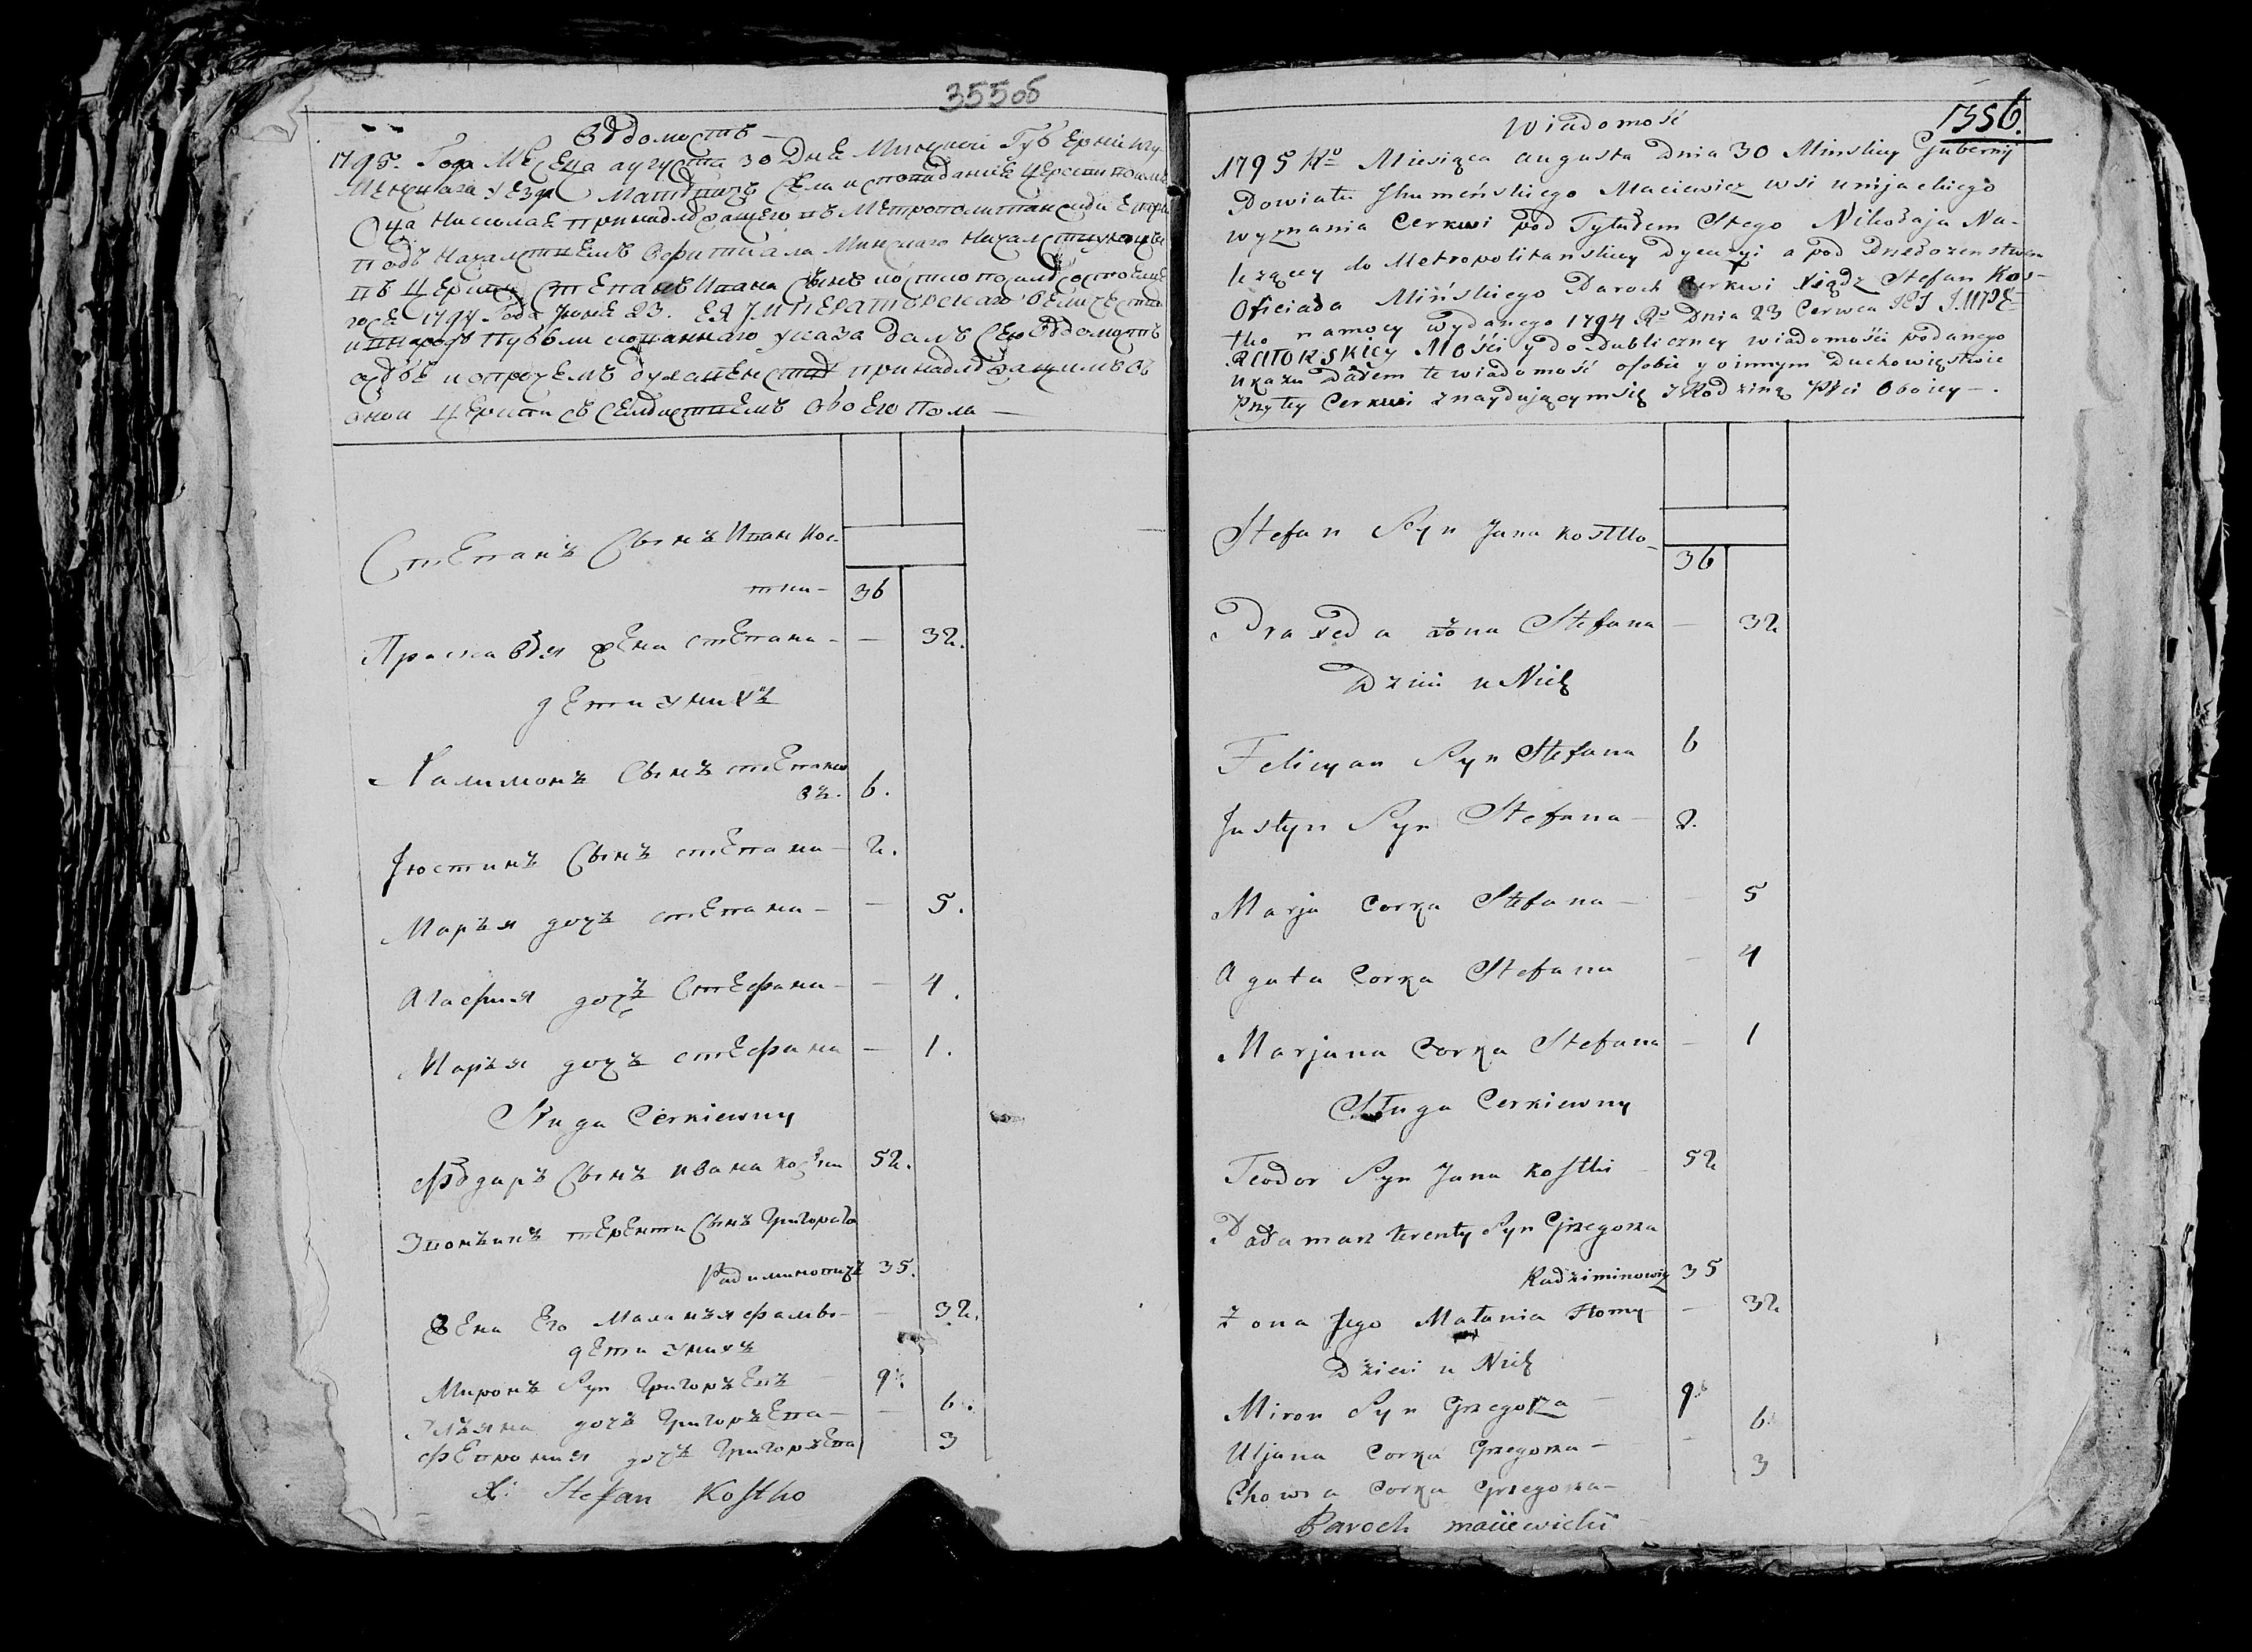 355об
Вѣдомость
1795. Года Месеца августа 30 Дня Минской Губерній Игу
менскаго уезда
Оца Николае принадлежащего къ Метрополитанской Епар
подъ началствемъ Официала Минскаго
Стефанъ Ивана сынъ
1794 Года Июня 23. ЕЯ ИМПЕРАТОРСКАГО Величества
указа далъ сею вѣдомость
о себѣ и о прочемъ духавенстве принадлежащимъ въ
оной Церкви съ семействиемъ обоего пола —
Степанъ Сынъ Иван Кос
тки - 36
Прасковья жена степана - — 32.
дети у нихъ
Халимонъ Сынъ степано
въ. 6.
Іюстинъ Сынъ степана - 2.
Марья дочъ степана - — 5.
Агафия дочъ Стефана - — 4.
Маръя дочъ стефана — 1.
Sługa Cerkiewny
Ѳѣдаръ Сынъ Ивана Костки 52.
Терента Сынъ Григорева
Радиминовичъ 35.
Жена Его Маланья — 32.
дети у нихъ
Миронъ Syn Григоръевъ 9.
Ульяна дочъ Григоръева — — 6.
дочъ Григоръева 3
X: Stefan Kostko
356.
Wiadomość
1795 Ro Miesiąca augusta Dnia 30 Minskiey Gubernij
Powiatu Jhumeńskiego Maciewicz wsi unijackiego
wyznania Cerkwi pod Tytułem Stego Nikołaja Na-
leżący do Metropolitańskiey Dyecezyi a pod Przełożenstwem
Oficiała Mińskiego Paroch Cerkwi Xiądz Stefan Kos-
tko namocy wydanego 1794 Ro Dnia 23 Czerwca JEJ IMPE-
RATORSKIEY MOŚCI y do Publiczney wiadomości podanego
ukazu Dałem te wiadomość osobie y oinnym Duchowięstwie
Przytey Cerkwi znaydującymsię z Rodziną Płci Oboiey —.
Stefan Syn Jana Kostko- 36
Praxeda żona Stefana — 32
Dzieci u Nich
Felicyan Syn Stefana 6
Justyn Syn Stefana — 2.
Marja Corka Stefana — — 5
Agata Corka Stefana — 4
Marjana Corka Stefana — 1
Sługa Cerkiewny
Teodor Syn Jana Kostki — 52
Pałamarz terenty Syn Grzegorza
Radziminowicz 35
Zona Jego Małania — 32
Dzieci u Nich
Miron Syn Grzegorza — 9
Uljana Corka Grzegorza — — 6
Chowra Corka Grzegorza — 3
Paroch maciewicki